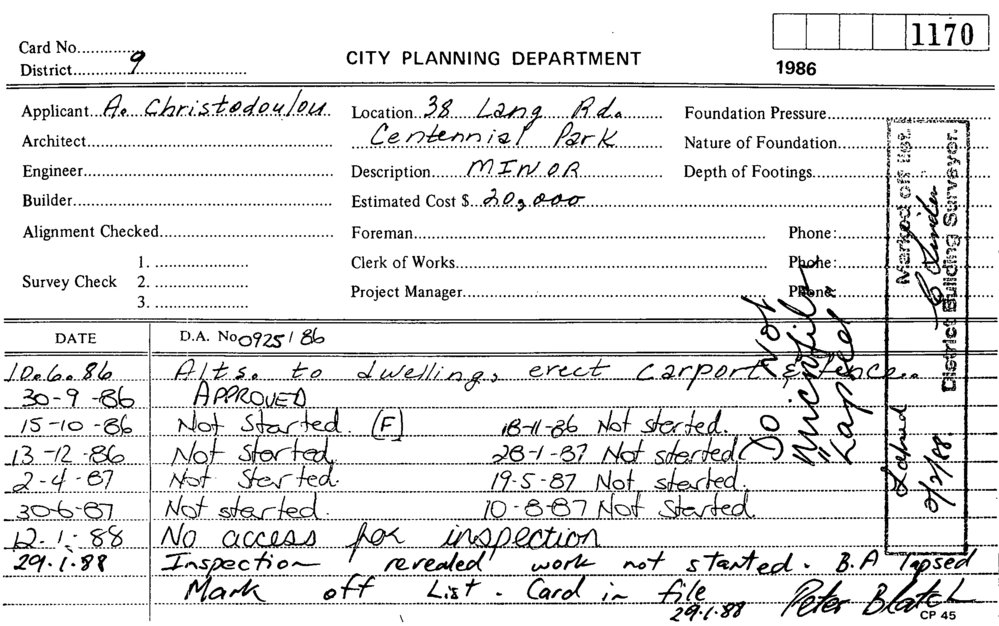 1170
Card No.
CITY PLANNING DEPARTMENT
District 9
1986
Applicant A. Christodoulou
Location 38 Lang Rd.
Foundation Pressure
Architect
Centennial Park
Nature of Foundation
Engineer
Description MINOR
Depth of Footings
Builder
Estimated Cost $ 20,000
Alignment Checked
Foreman
Phone:
Survey Check
1.
2.
3.
Clerk of Works
Phone:
Project Manager
Phone:
Marked off list.
District Building Surveyor.
Lapsed
Do Not
Microfilm
"Lapsed"
DATE
D.A. No 0925/86
10.6.86 Alts. to dwelling, erect carport & fence.
30-9-86 APPROVED
15-10-86 Not Started. (F) 18-11-86 Not started.
13-12-86 Not started. 28-1-87 Not started.
2-4-87 Not Started. 19-5-87 Not started.
30-6-87 Not started. 10-8-87 Not Started.
12.1.88 No access for inspection
29.1.88 Inspection revealed work not started. B.A lapsed
Mark off List. Card in file
29.1.88 Peter Blatch
CP 45